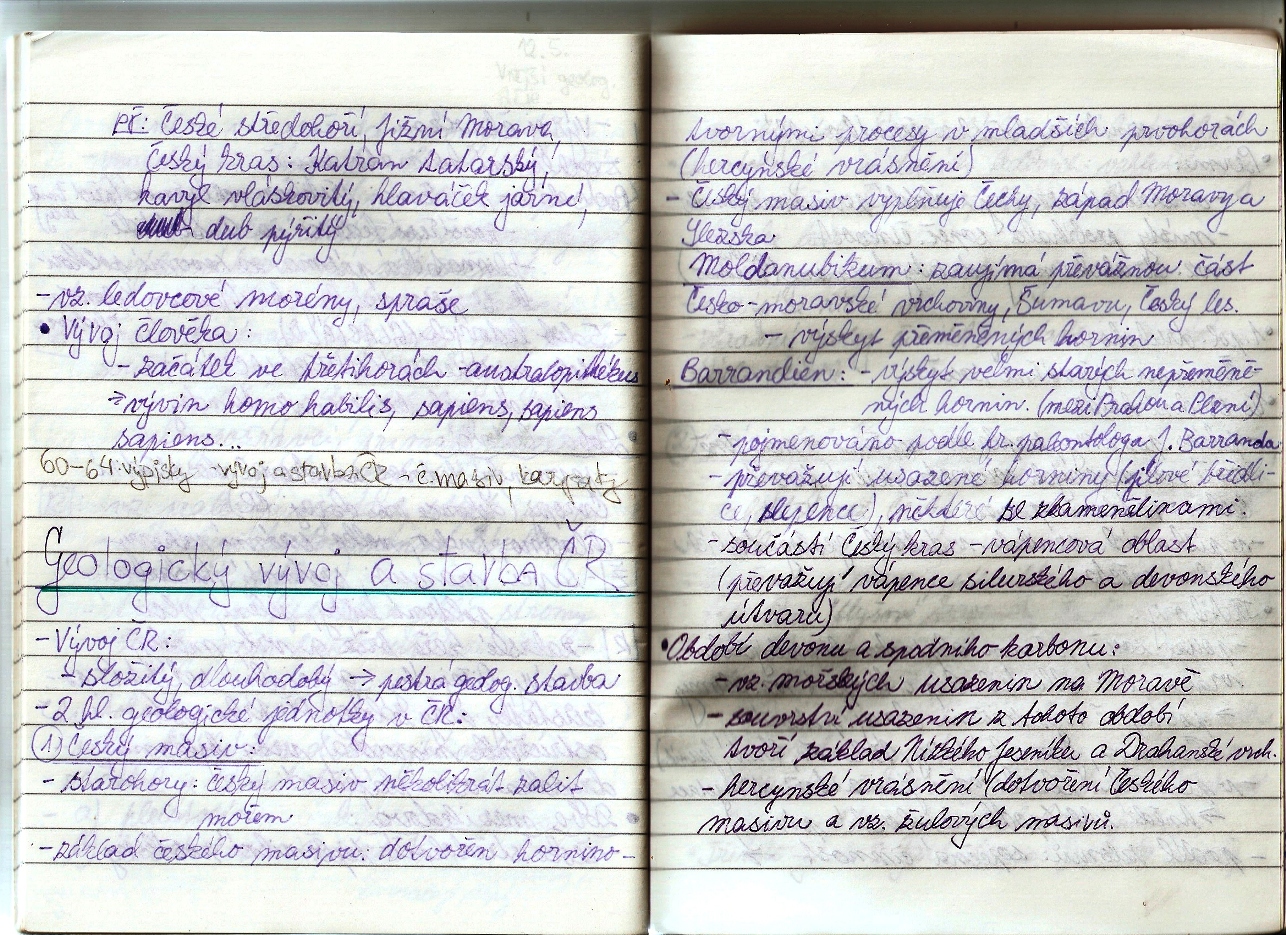 př: České středohoří, jižní Morava,
Český kras: Katrán tatarský,
kavyl vláskovitý, hlaváček jarní,
dub pýřitý
-vz. ledovcové morény, spraše
• Vývoj člověka:
-začátek ve třetihorách -australopithékus
⇒vývin homo habilis, sapiens, sapiens
sapiens...
60-64 výpisky -vývoj a stavba ČR - č. masiv, karpaty
Geologický vývoj a stavba ČR
-Vývoj ČR:
- složitý, dlouhodobý → pestrá geolog. stavba
-2 hl. geologické jednotky v ČR:
① Český masiv:
- starohory: český masiv několikrát zalit
mořem
-základ českého masivu: dotvořen hornino-
tvornými procesy v mladších prvohorách
(hercynské vrásnění)
- Český masiv vyplňuje Čechy, západ Moravy a
Slezska
Moldanubikum: zaujímá převážnou část
Česko-moravské vrchoviny, Šumavu, Český les.
- výskyt přeměněných hornin
Barrandien: -výskyt velmi starých nepřeměně-
ných hornin. (mezi Prahou a Plzní)
-pojmenováno podle fr. paleontologa J. Barranda
-převažují usazené horniny (jílové břidli-
ce, slepence), některé se zkamenělinami.
-součástí Český kras - vápencová oblast
(převažují vápence silurského a devonského
útvaru)
•Období devonu a spodního karbonu:
-vz. mořských usazenin na Moravě
-souvrství usazenin z tohoto období
tvoří základ Nízkého Jeseníku a Drahanské vrch.
-hercynské vrásnění (dotvoření Českého
masivu a vz. žulových masivů.